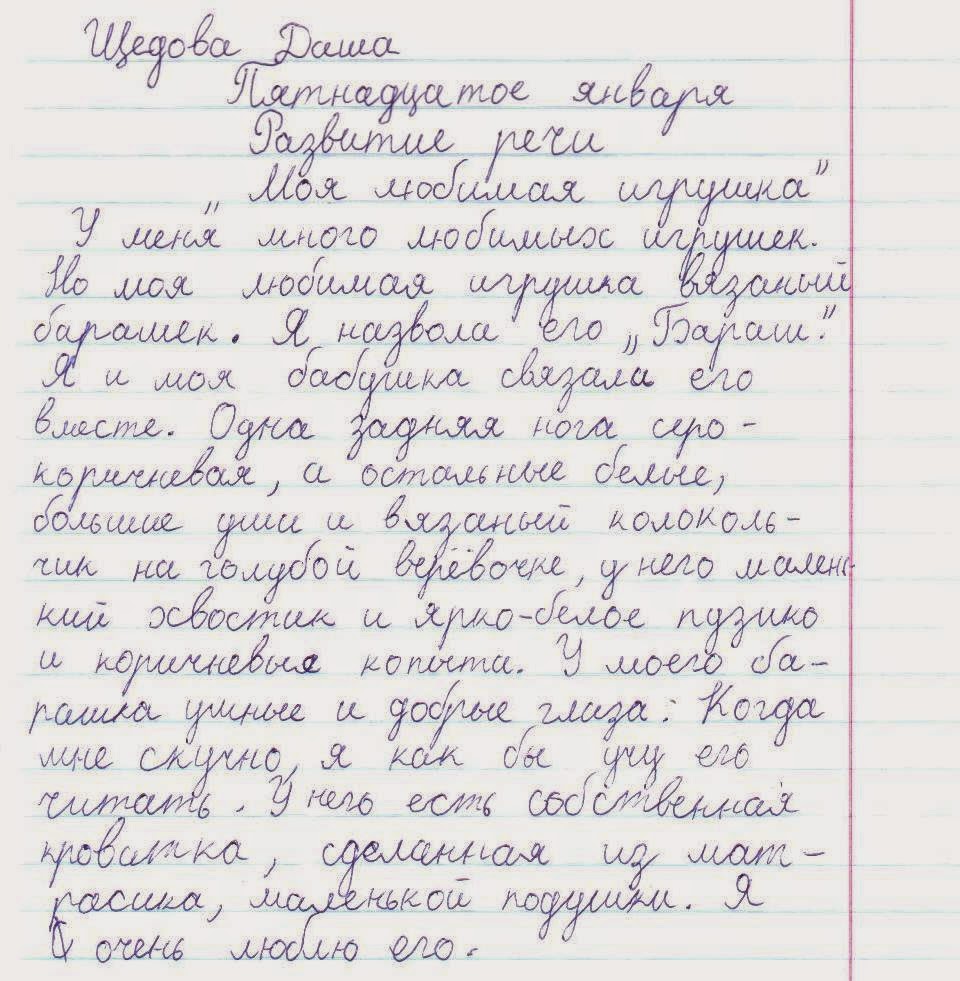 Щедова Даша
Пятнадцатое января
Развитие речи
„Моя любимая игрушка”
У меня много любимых игрушек.
Но моя любимая игрушка вязаный
барашек. Я назвола его „Бараш.”
Я и моя бабушка связала его
вместе. Одна задняя нога серо-
коричневая, а остальные белые,
большие уши и вязаный колоколь-
чик на голубой верёвочке, у него малень-
кий хвостик и ярко-белое пузико
и коричневые копыта. У моего ба-
рашка умные и добрые глаза. Когда
мне скучно, я как бы учу его
читать. У него есть собственная
кроватка, сделанная из мат-
расика, маленькой подушки. Я
очень люблю его.